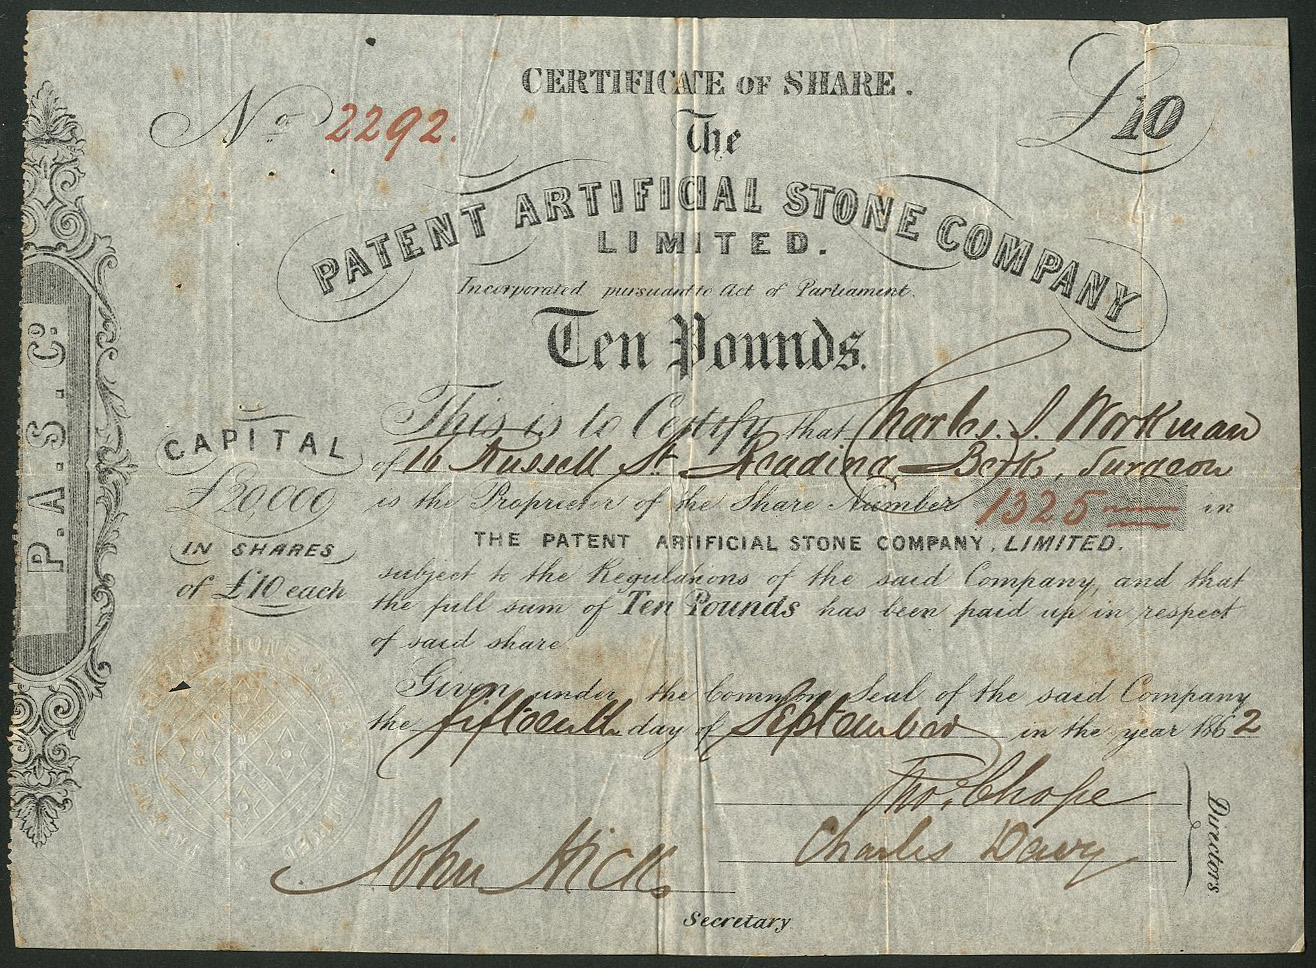 CERTIFICATE OF SHARE.
No 2292.
£10
The
PATENT ARTIFICIAL STONE COMPANY
LIMITED.
Incorporated pursuant to Act of Parliament.
Ten Pounds.
This is to Certify that Charles. J. Workman
of 16 Russell St Reading Berks, Surgeon
is the Proprietor of the Share Number 1325 in
THE PATENT ARTIFICIAL STONE COMPANY, LIMITED.
subject to the Regulations of the said Company, and that
the full sum of Ten Pounds has been paid up in respect
of said share
Given under the Common Seal of the said Company
the fifteenth day of September in the year 1862
Thos. Chope
Charles Davy
Directors.
John Hicks
Secretary
CAPITAL
£20,000
IN SHARES
of £10 each
P.A.S. Co.